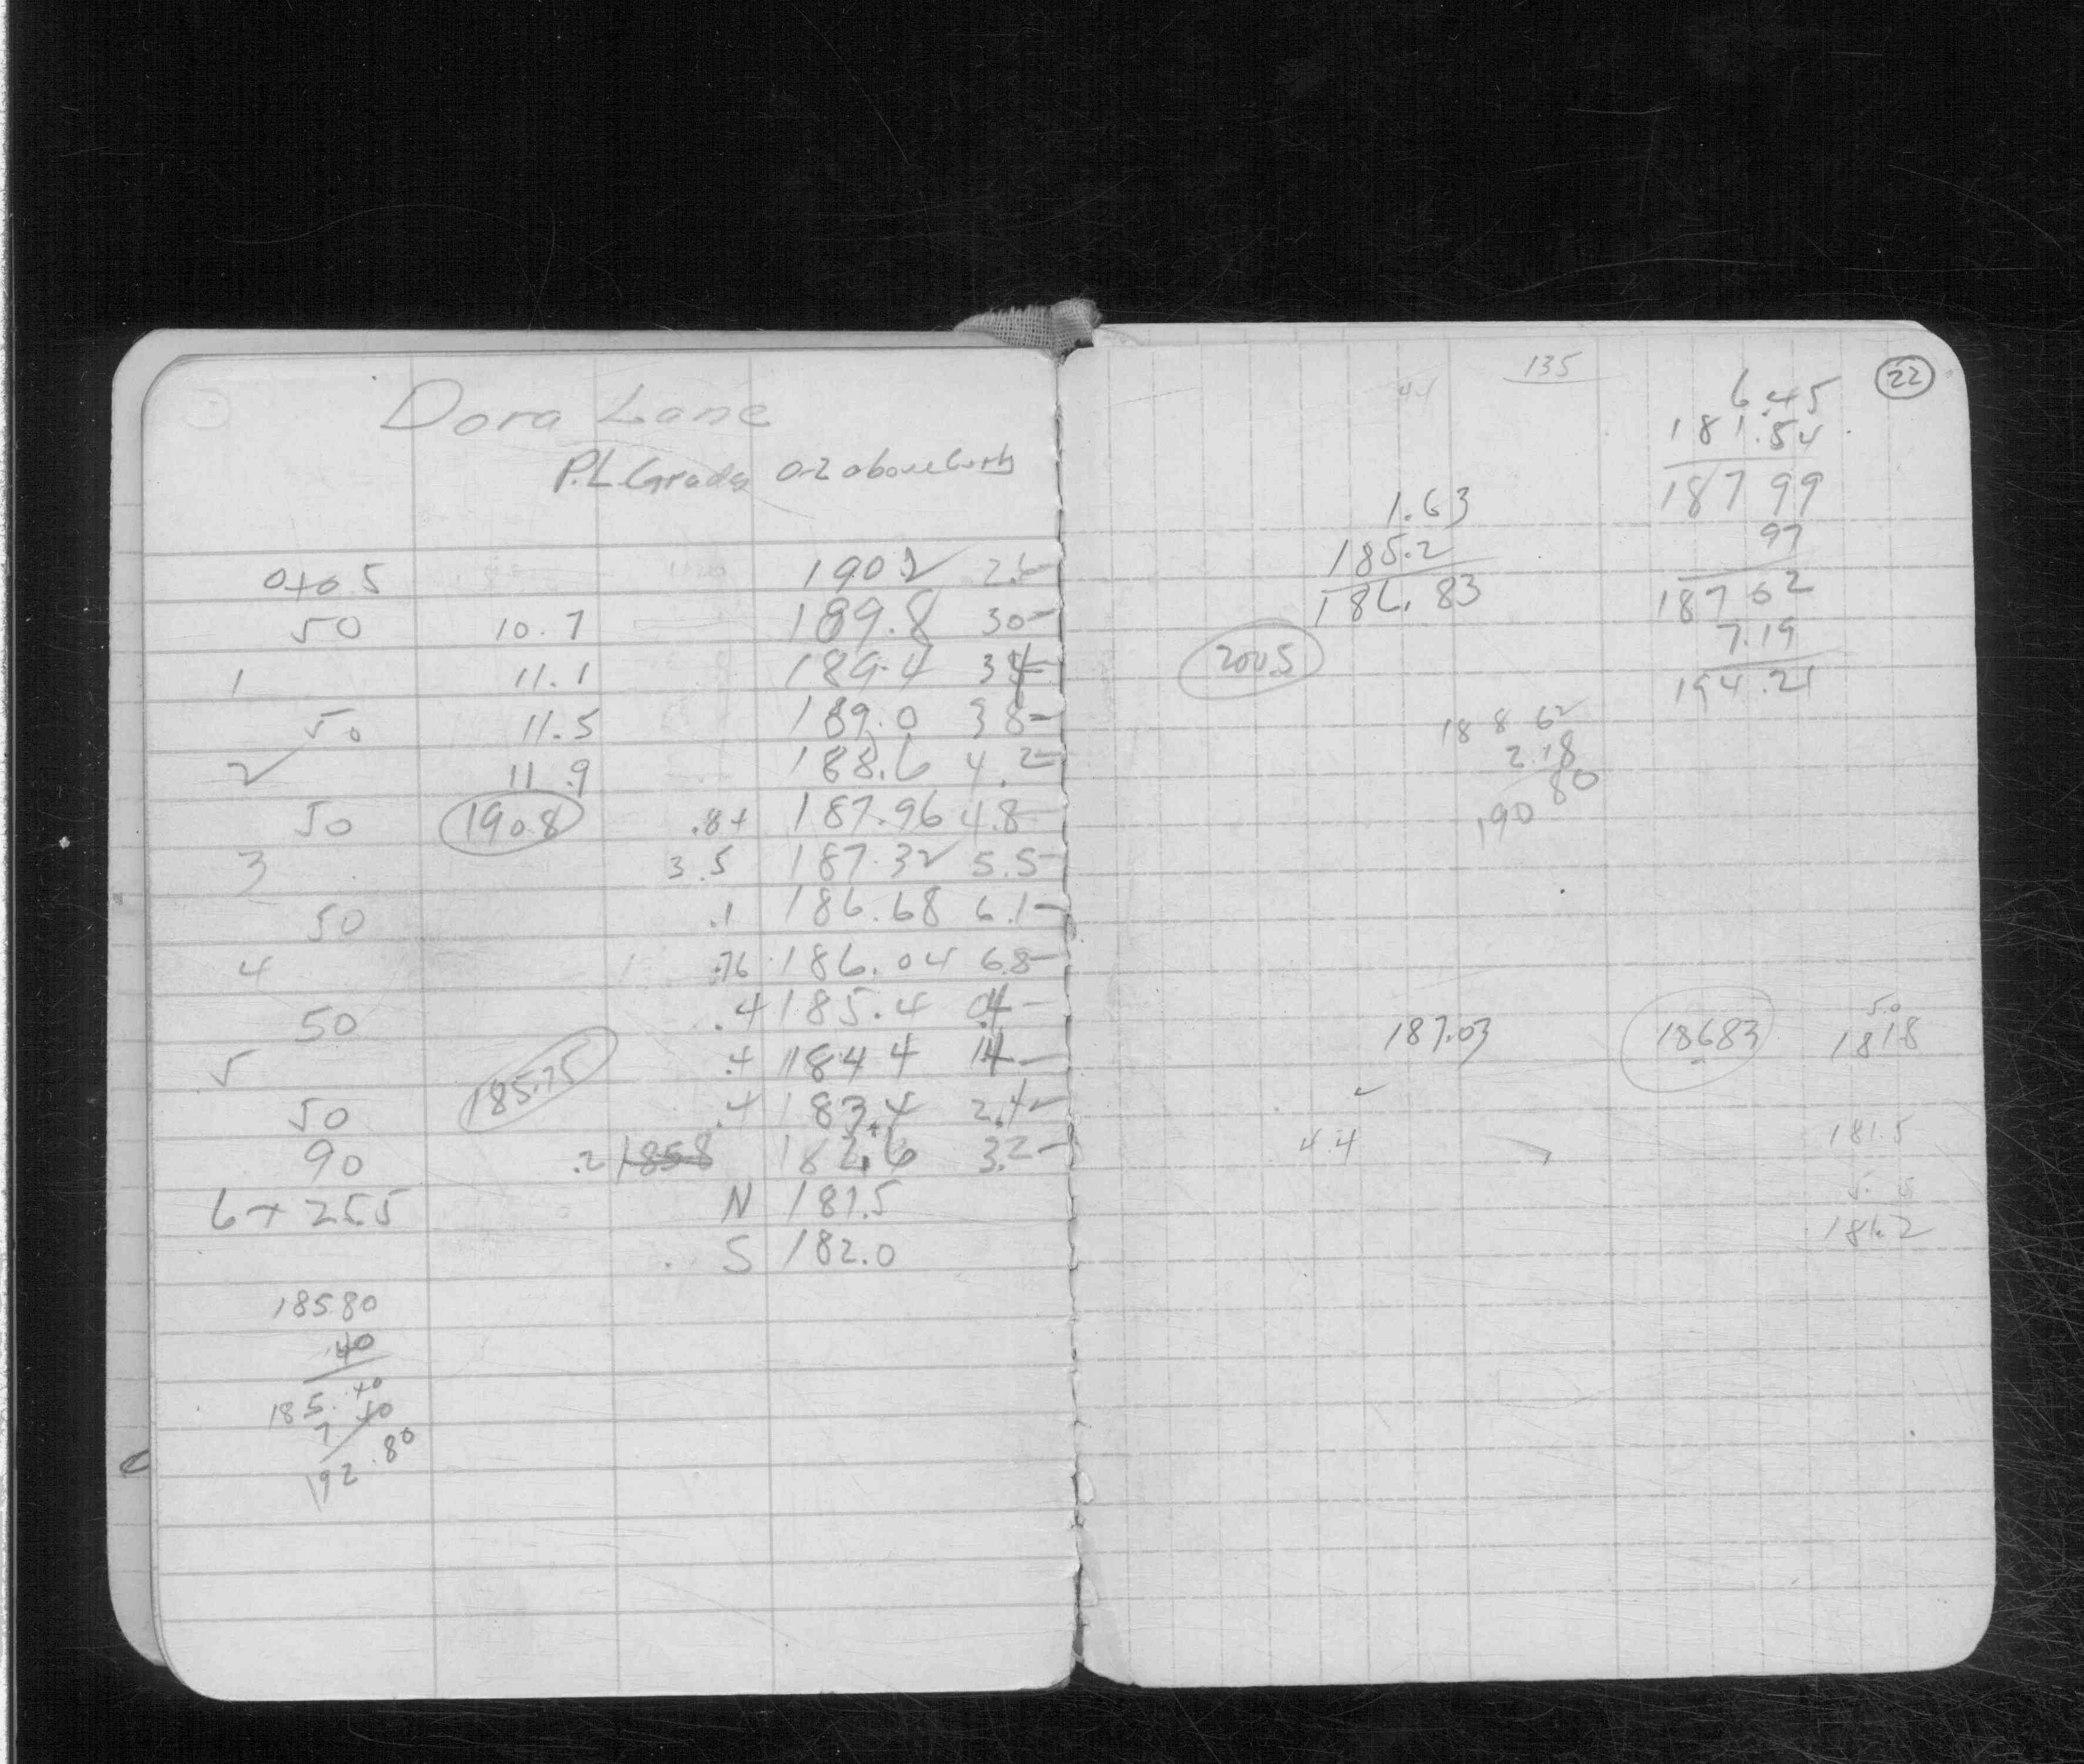 Dora Lane
P.L. Grades 0.2 above Curb
0+0.5 190.2 2.6
50 10.7 189.8 3.0
1 11.1 189.4 3.4
50 11.5 189.0 3.8
2 11.9 188.6 4.2
50 190.8 .84 187.96 4.8
3 3.5 187.32 5.5
50 .1 186.68 6.1
4 .76 186.04 6.8
50 .4 185.4 0.4
5 185.75 .4 184.4 1.4
50 .4 183.4 2.4
90 .2 185.8 182.6 3.2
6+25.5 N 181.5
S 182.0
185 80
.40
185.40
7.40
192.80
22
135
4.1
6.45
181.54
187 99
97
187 02
7.19
194.21
1.63
185.2
186.83
200.5
188 62
2.18
190 80
187.03
186 83
5.0
181.8
4.4
181.5
186.2